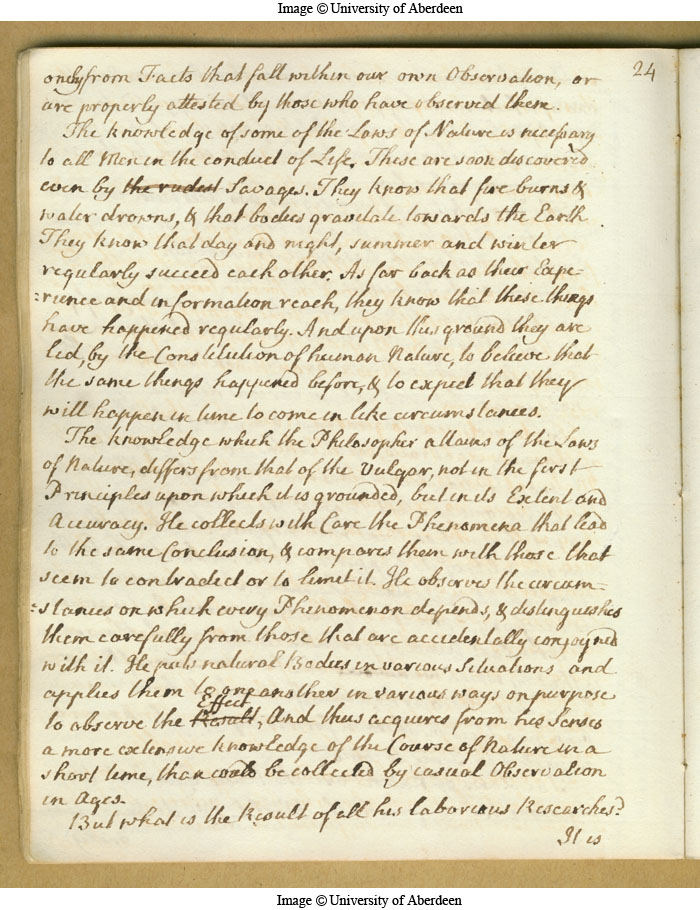 Image © University of Aberdeen
24
only from Facts that fall within our own Observation, or
are properly attested by those who have observed them.
The knowledge of some of the Laws of Nature is necessary
to all Men in the conduct of Life. These are soon discovered
even by the rudest Savages. They know that fire burns &
water drowns, & that bodies gravitate towards the Earth
They know that day and night, summer and winter
regularly succeed each other. As far back as their Expe-
=rience and information reach, they know that these things
have happened regularly. And upon this ground they are
led, by the Constitution of human Nature, to believe that
the same things happened before, & to expect that they
will happen in time to come in like circumstances.
The knowledge which the Philosopher attains of the Laws
of Nature, differs from that of the Vulgar, not in the first
Principles upon which it is grounded, but in its Extent and
Accuracy. He collects with Care the Phenomena that lead
to the same Conclusion, & compares them with those that
seem to contradict or to limit it. He observes the circum-
=stances on which every Phenomenon depends, & distinguishes
them carefully from those that are accidentally conjoyned
with it. He puts natural Bodies in various Situations and
applies them to one another in various ways on purpose
Effect
to observe the Result, And thus acquires from his Senses
a more extensive knowledge of the Course of Nature in a
short time, than could be collected by casual Observation
in Ages.
But what is the Result of all his laborious Researches?
It is
Image © University of Aberdeen